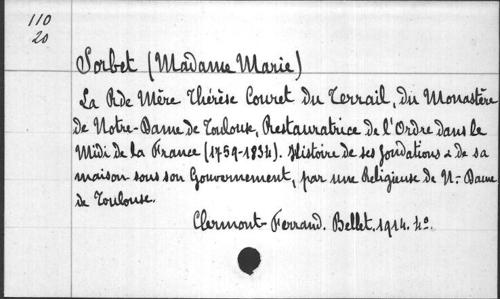 110
20
Sorbet (Madame Marie)
La Rde Mère Thérèse Couret du Terrail, du Monastère
de Notre-Dame de Toulouse, Restauratrice de l'Ordre dans le
Midi de la France (1759-1834). Histoire de ses fondations & de sa
maison sous son Gouvernement, par une Religieuse de N.-Dame
de Toulouse.
Clermont-Ferrand. Bellet. 1914. 4o.